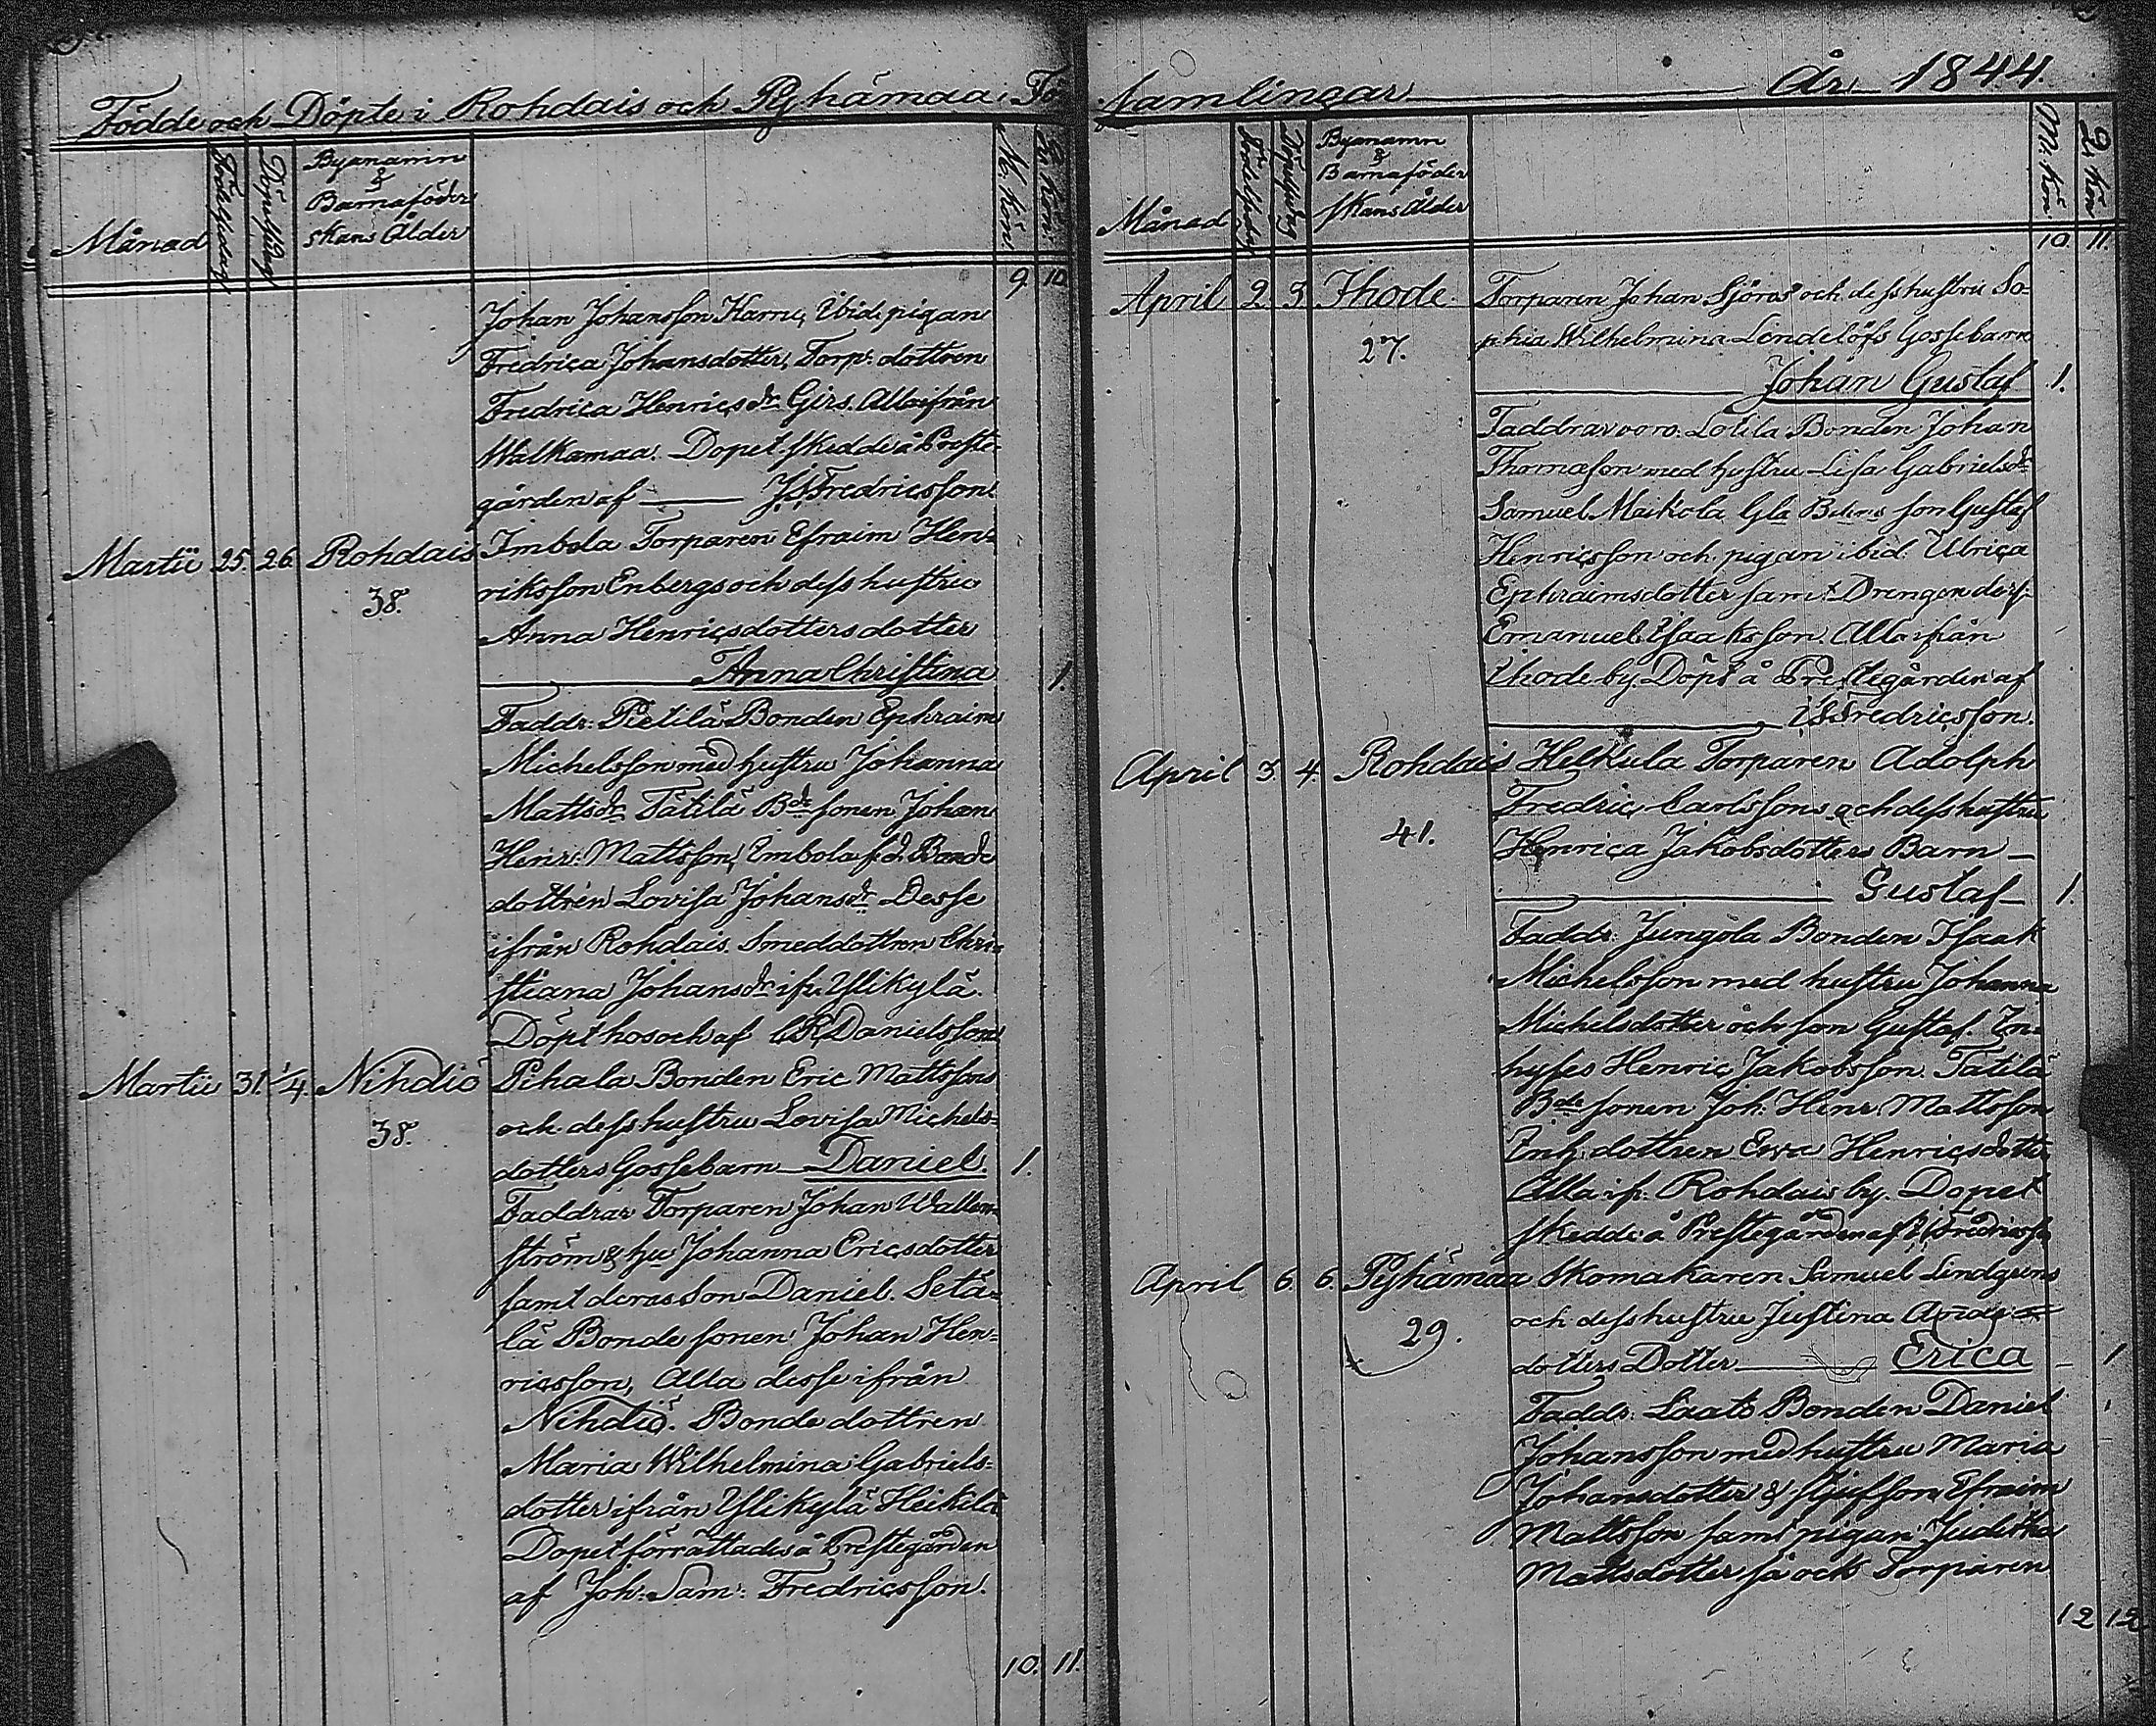 Födde och Döpte i Rohdais och Pyhämaa För
Månad
Födelsedag
Döpelsedag
Byanamn
&
Barnaföder
skans Ålder
M. kön
Q. kön
9. 10
Johan Johansson Harru, ibid. pigan
Fredrica Johansdotter, Torp. dottren
Fredrica Henricsdr Girs. Alla ifrån
Walkamaa. Dopet skedde å Preste
gården af J.S. Fredricsson.
Martii 25. 26. Rohdais Imbola Torparen Efraim Hen-
38. riksson Enbergs och dess hustru
Anna Henricsdotters dotter
Anna Christina 1.
Faddr: Pietilä Bonden Ephraim
Michelsson med hustru Johanna
Mattsdr Tätilä Bde sonen Johan
Henr: Mattsson, Embola f.d. Bonde
dottren Lovisa Johansdr Desse
ifrån Rohdais. Smeddottren Chri-
stiana Johansdr ifr. Ylikylä.
Döpt hos och af C.R. Danielsson
Martii 31. 1/4. Nihdiö Pihala Bonden Eric Mattssons
38. och dess hustru Lovisa Michels-
dotters Gossebarn Daniel. 1.
Faddrar Torparen Johan Wallen-
ström & hu Johanna Ericsdotter
samt deras Son Daniel. Setä-
lä Bonde sonen Johan Hen-
ricsson, Alla desse ifrån
Nihdiö. Bonde dottren
Maria Wilhelmina Gabriels-
dotter ifrån Ylikylä Heikilä
Dopet förrättades å Prestegården
af Joh: Sam: Fredricsson.
10. 11.
samlingar År 1844
Månad
Födelsedag
Döpelsedag
Byanamn
&
Barnaföder
skans Ålder
M. kön
Q. kön
10 11
April 2. 3. Ihode Torparen Johan Sjöros och dess hustru So-
27. phia Wilhelmina Lindelöfs Gossebarn
Johan Gustaf 1.
Faddrar voro: Lotila Bonden Johan
Thomæson med hustru Lisa Gabrielsdr
Samuel Maikola Gla Bdens son Gustaf
Henricsson och pigan ibid. Ulrica
Ephraimsdotter samt Drengen ders:
Emanuel Isaaksson. Alla ifrån
Ihode by. Döpt å Prestegården af
J.S. Fredricsson.
April 3. 4. Rohdais Helkula Torparen Adolph
41. Fredric Carlssons och dess hustru
Henrica Jakobsdotters Barn
Gustaf 1.
Faddr: Jungola Bonden Isaak
Michelsson med hustru Johanna
Michelsdotter och son Gustaf. In-
hyses Henric Jakobsson. Tätilä
Bde sonen Joh: Henr Mattsson
Inh: dottren Ewa Henricsdotter
Alla ifr. Rohdais by. Dopet
skedde å Prestegården af J.S. Fredricsson
April 6. 6. Pyhämaa Skomakaren Samuel Lindgrens
29. och dess hustru Justina
dotters Dotter Erica 1
Faddr: Laato Bonden Daniel
Johansson med hustru Maria
Johansdotter & stjufson Efraim
Mattsson samt pigan Juditha
Mattsdotter så ock Torparen
12 12